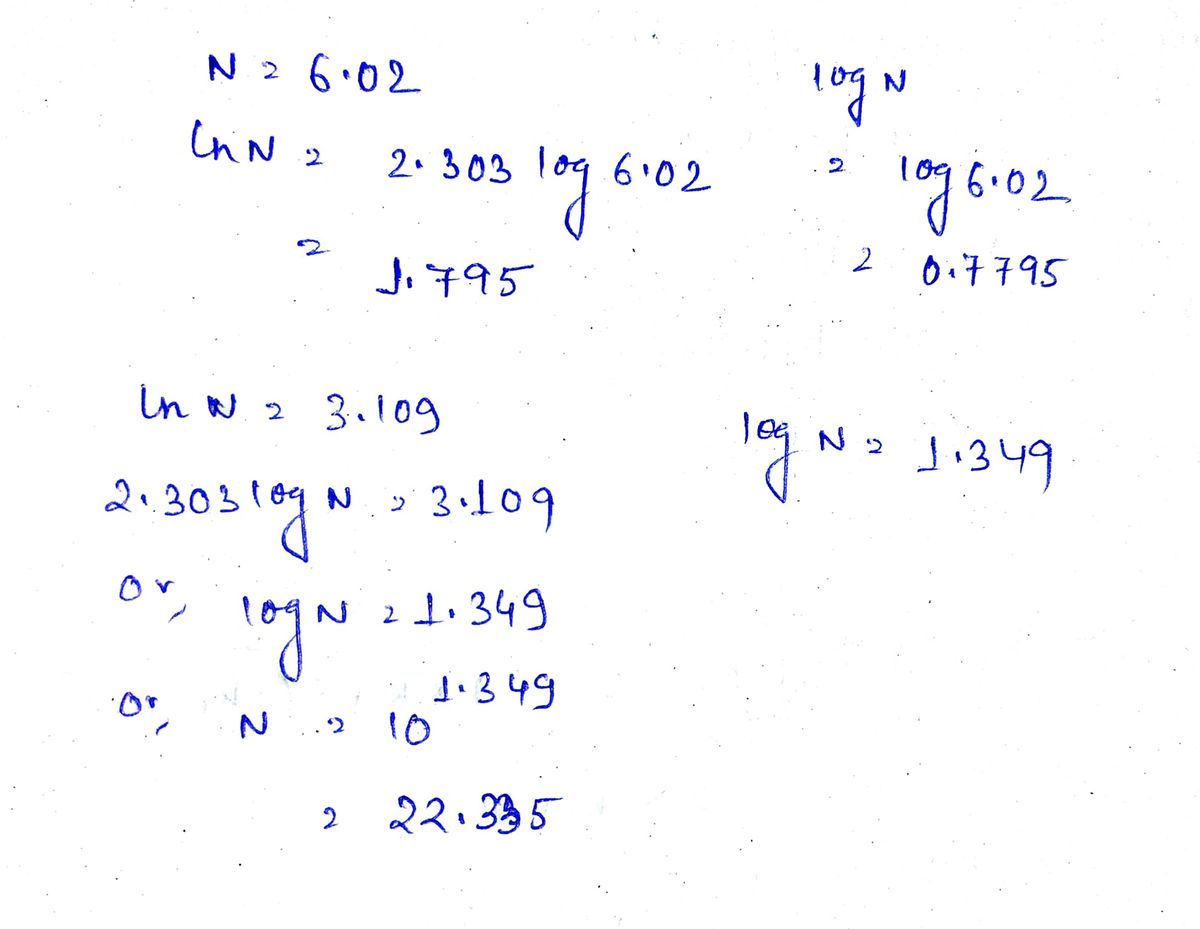 N = 6.02
ln N = 2.303 log 6.02
= 1.795
log N
= log 6.02
= 0.7795
ln N = 3.109
2.303 log N = 3.109
or, log N = 1.349
or, N = 10^1.349
= 22.335
log N = 1.349